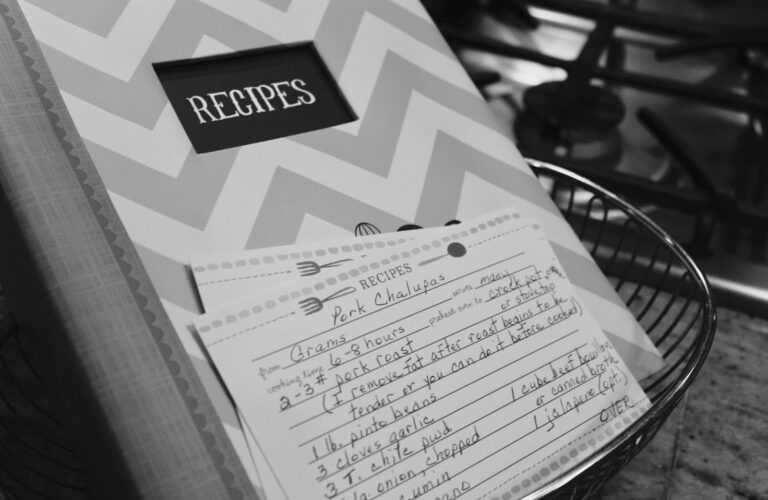 RECIPES
RECIPES
Pork Chalupas
from Grams serves many
cooking time 6-8 hours preheat oven to crock pot on
or stove top
2-3# pork roast
(I remove fat after roast begins to be
tender or you can do it before cooked)
1 lb. pinto beans
3 cloves garlic 1 cube beef bouillon
3 T. chile pwd or canned broth
onion, chopped 1 jalapeno (opt.)
cumin OVER